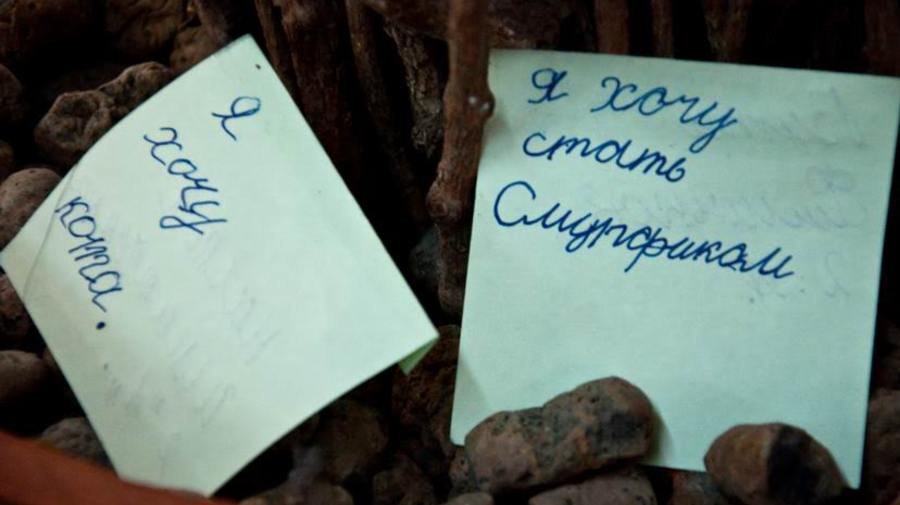 Я
хочу
кота.
Я хочу
стать
Смурфиком